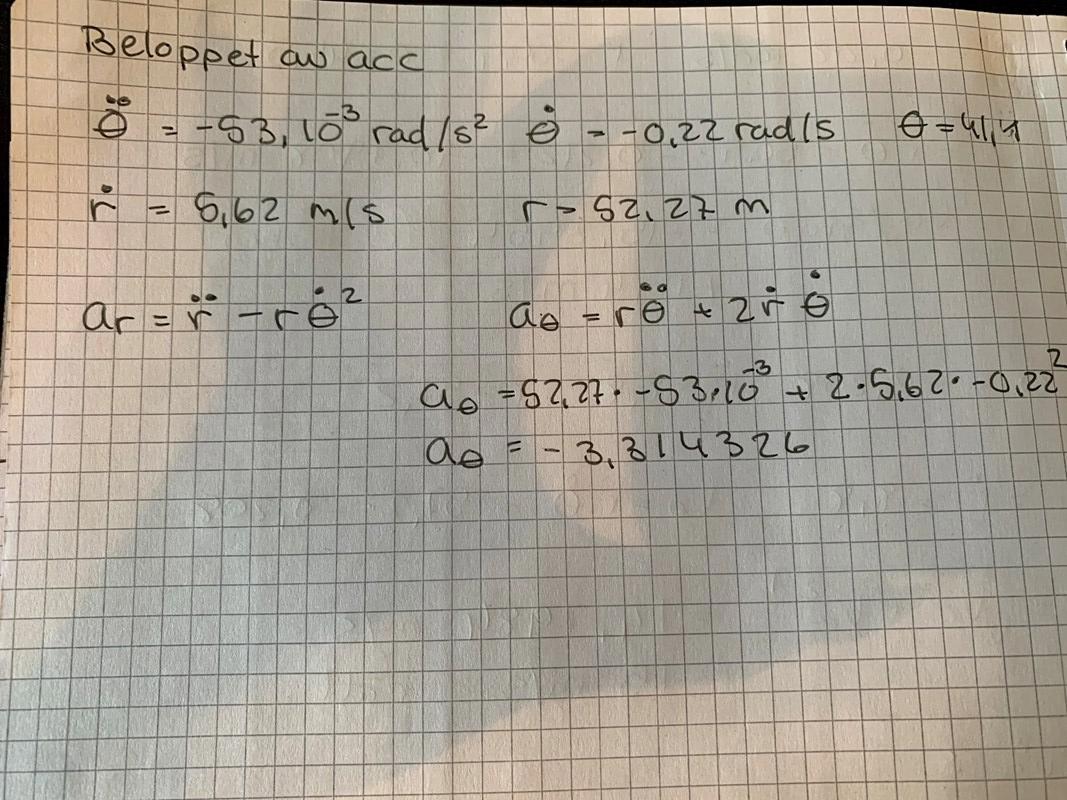 Beloppet av acc
θ̈ = -53,10⁻³ rad/s² θ̇ = -0,22 rad/s θ = 41,4
ṙ = 5,62 m/s r = 52,27 m
ar = r̈ - rθ̇² aθ = rθ̈ + 2ṙ θ̇
aθ = 52,27 · -53·10⁻³ + 2·5,62· -0,22²
aθ = -3,314326